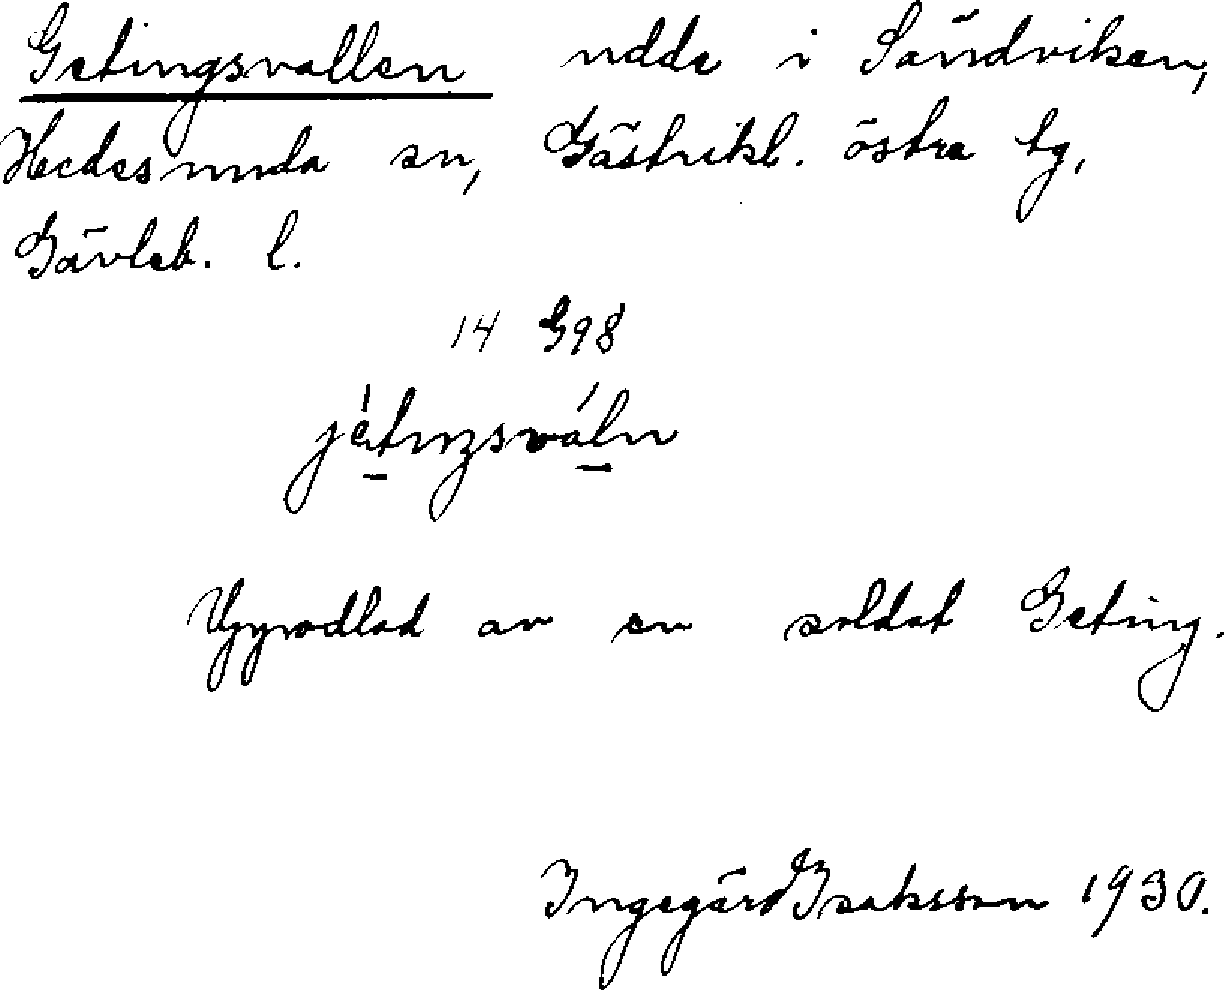 Getingsvallen udde i Sandviken,
Hedesunda sn, Gästrikl. östra tg,
Gävleb. l.
14 G98
Uppodlad av en soldat Geting.
Ingegärd Isaksson 1930.